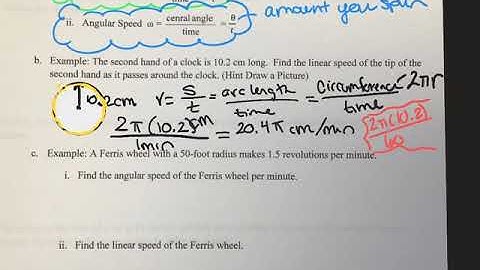 amount you spin
ii. Angular Speed ω = cenral angle / time = θ / t
b. Example: The second hand of a clock is 10.2 cm long. Find the linear speed of the tip of the
second hand as it passes around the clock. (Hint Draw a Picture)
10.2cm v = s/t = arc length / time = Circumference / time = 2πr
2π(10.2)cm / 1min = 20.4π cm/min 2π(10.2) / 60
c. Example: A Ferris wheel with a 50-foot radius makes 1.5 revolutions per minute.
i. Find the angular speed of the Ferris wheel per minute.
ii. Find the linear speed of the Ferris wheel.